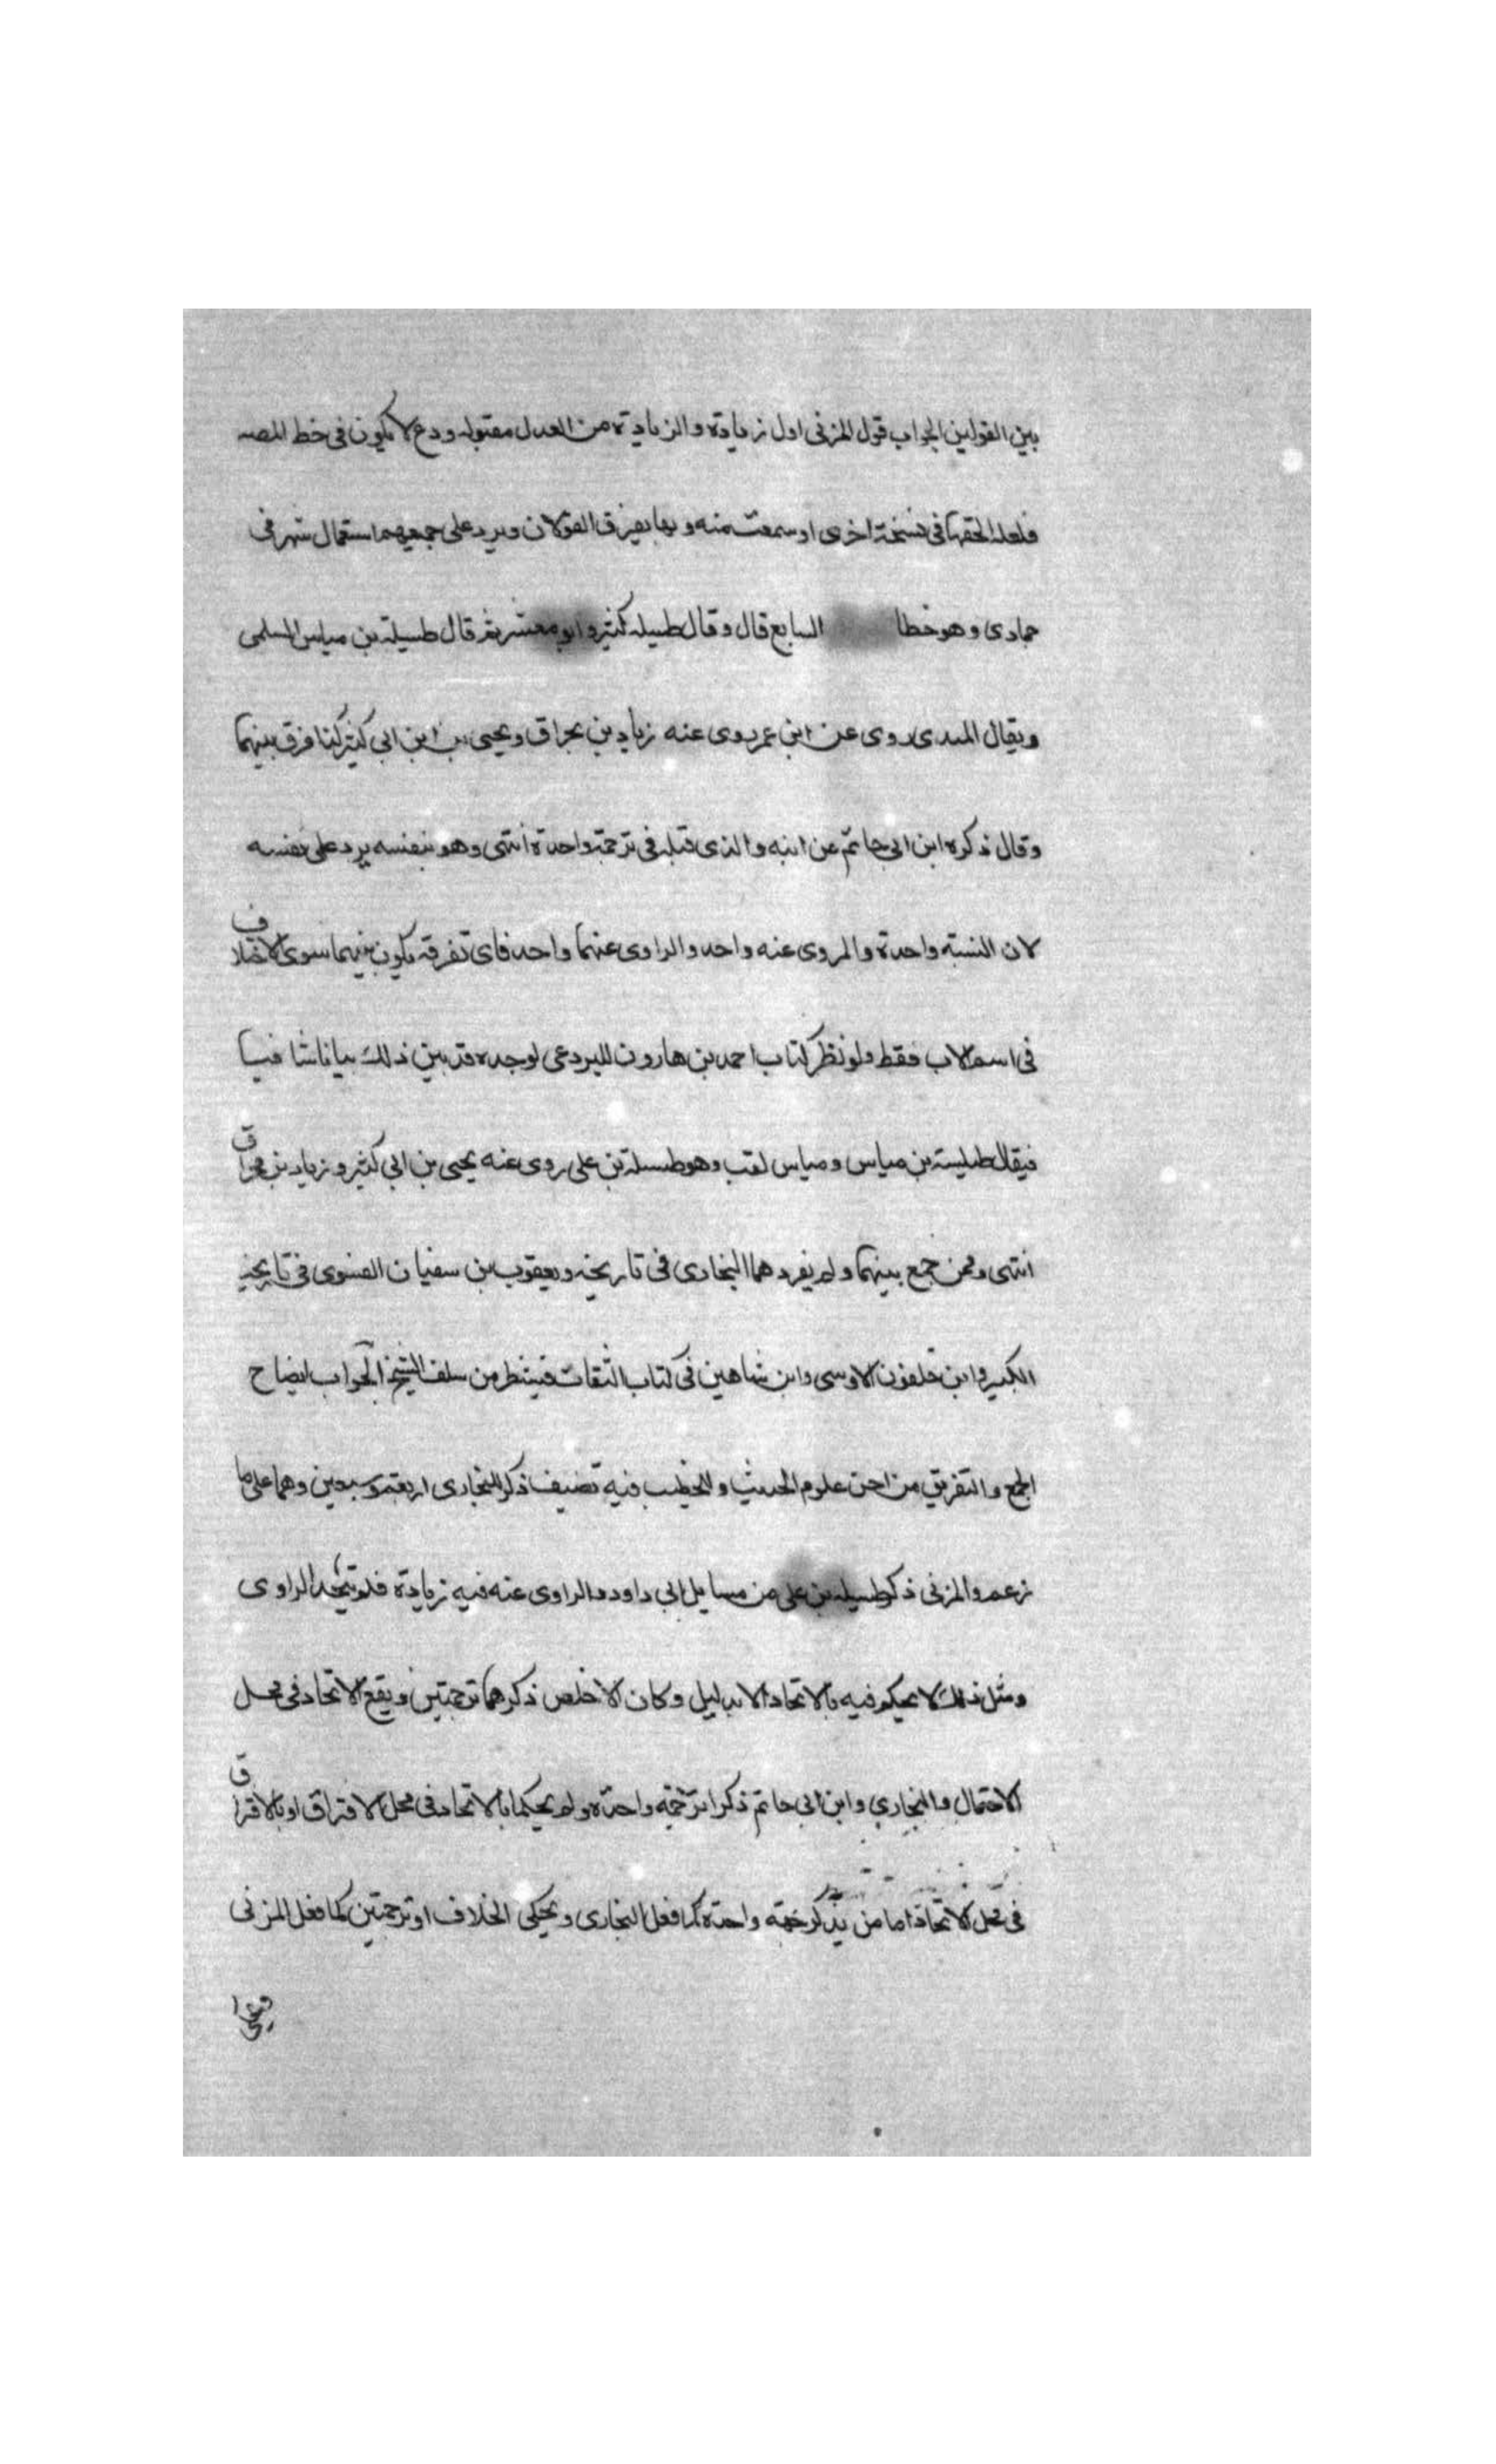 بين القولين الجواب قول المزنى اول زيادة والزيادة من العدل مقبوله ودع لا يكون فى خط المصه
فلعله الحقها فى نسخة اخرى او سمعت منه وبها يفترق القولان ويرد على جميعهما استعمال شهر فى
جمادى وهو خطا السابع قال وقال طيسله كثير وابو معشر ثم قال طيسلة بن مياس السلمى
ويقال النهدى روى عن ابن عمر روى عنه زياد بن مخراق ويحيى بن ابن ابى كثير كذا فرق بينهما
وقال ذكره ابن ابى حاتم عن ابيه والذى قبله فى ترجمة واحدة انتهى وهو بنفسه يرد على نفسه
لان النسبه واحدة والمروى عنه واحد والراوى عنهما واحد فاى تفرقه يكون بينهما سوى الاختلاف
فى اسم الاب فقط ولو نظر كتاب احمد بن هارون البردعى لوجده قد بين ذلك بيانا شافيا
فيقال طيلسة بن مياس ومياس لقب وهو طيسلة بن على روى عنه يحيى بن ابى كثير وزياد بن مخراق
انتهى وممن جمع بينهما ولم يفردهما البخارى فى تاريخه ويعقوب بن سفيان الفسوى فى تاريخه
الكبير وابن خلفون الاونبى وابن شاهين فى كتاب الثقات فينظر من سلف الشيخ الجواب ايضاح
الجمع والتفريق من احق علوم الحديث والخطيب فيه تصنيف ذكر للبخارى اربعة وسبعين وهما على ما
زعم والمزنى ذكر طيسله بن على من مسايل ابى داود والراوى عنه فيه زيادة فلو يتحد الراوى
ومثل ذلك لا يحكم فيه بالاتحاد الا بدليل وكان الاخلص ذكرهما ترجمتين ويقع الاتحاد فى محل
الاحتمال والبخارى وابن ابى حاتم ذكرا ترجمة واحدة ولم يحكما بالاتحاد فى محل الافتراق او بالافتراق
فى محل الاتحاد اما من يذكر ترجمه واحدة كما فعل البخارى ويحكى الخلاف او ترجمتين كما فعل المزنى